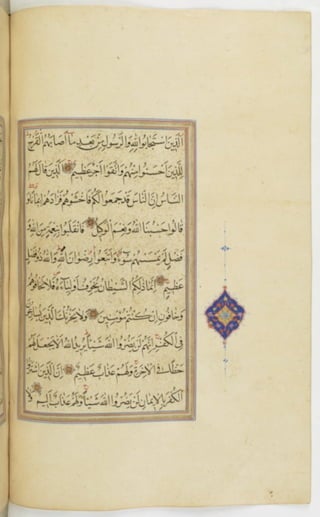 الَّذِينَ اسْتَجَابُوا لِلَّهِ وَالرَّسُولِ مِنْ بَعْدِ مَا أَصَابَهُمُ الْقَرْحُ
لِلَّذِينَ أَحْسَنُوا مِنْهُمْ وَاتَّقَوْا أَجْرٌ عَظِيمٌ الَّذِينَ قَالَ لَهُمُ
النَّاسُ إِنَّ النَّاسَ قَدْ جَمَعُوا لَكُمْ فَاخْشَوْهُمْ فَزَادَهُمْ إِيمَانًا وَ
قَالُوا حَسْبُنَا اللَّهُ وَنِعْمَ الْوَكِيلُ فَانْقَلَبُوا بِنِعْمَةٍ مِنَ اللَّهِ وَ
فَضْلٍ لَمْ يَمْسَسْهُمْ سُوءٌ وَاتَّبَعُوا رِضْوَانَ اللَّهِ وَاللَّهُ ذُو فَضْلٍ
عَظِيمٍ إِنَّمَا ذَلِكُمُ الشَّيْطَانُ يُخَوِّفُ أَوْلِيَاءَهُ فَلَا تَخَافُوهُمْ
وَخَافُونِ إِنْ كُنْتُمْ مُؤْمِنِينَ وَلَا يَحْزُنْكَ الَّذِينَ يُسَارِعُونَ
فِي الْكُفْرِ إِنَّهُمْ لَنْ يَضُرُّوا اللَّهَ شَيْئًا يُرِيدُ اللَّهُ أَلَّا يَجْعَلَ لَهُمْ
حَظًّا فِي الْآخِرَةِ وَلَهُمْ عَذَابٌ عَظِيمٌ إِنَّ الَّذِينَ اشْتَرَوُا
الْكُفْرَ بِالْإِيمَانِ لَنْ يَضُرُّوا اللَّهَ شَيْئًا وَلَهُمْ عَذَابٌ أَلِيمٌ وَ